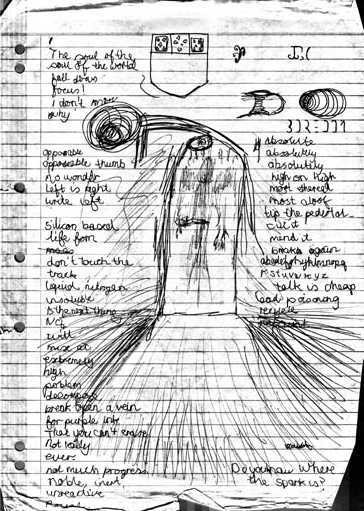 The soul of the
soul of the world
fall down
focus!
I don't know
why
opposable
opposable thumb
no wonder
left is right
write left
Silicon based
life form
don't touch the
track
liquid nitrogen
insoluble
is the next thing
will
extremely
high
problem
decompose
break open a vein
for purple ink
That you can't erase
Not really
ever.
not much progress
Noble, inert
unreactive
absolute
absolutely
absolutely
high on high
most shared
most aloof
tip the pedestal
cut it
mind it
broke again
abcdefghijklmnopq
rstuvwxyz
talk is cheap
lead poisoning
Do you know where
the spark is?